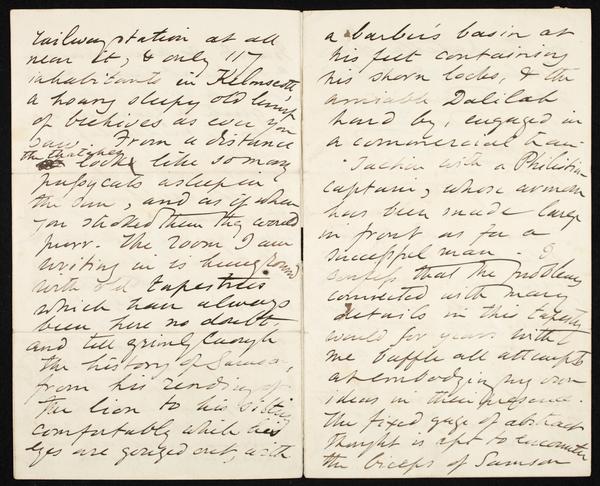 railway station at all
near it, & only 117
inhabitants in Kelmscott,
a hoary sleepy old lump
of beehives as ever you
saw. From a distance
the thatches look like so many
pussycats asleep in
the sun, and as if when
you stroked them they would
purr. The room I am
writing in is hung round
with old tapestries
which have always
been here no doubt,
and tell grimly enough
the history of Samson,
from his rending of
the lion to his sitting
comfortably while his
eyes are gouged out, with
a barber's basin at
his feet containing
his shorn locks, & the
amiable Dalilah
hard by, engaged in
a commercial tran-
saction with a Philistine
captain, whose armour
has been made large
in front as for a
successful man. I
confess that the problems
connected with many
details in this tapestry
would for years with
me baffle all attempts
at embodying my own
ideas in their presence.
The fixed gaze of abstract
thought is apt to encounter
the biceps of Samson